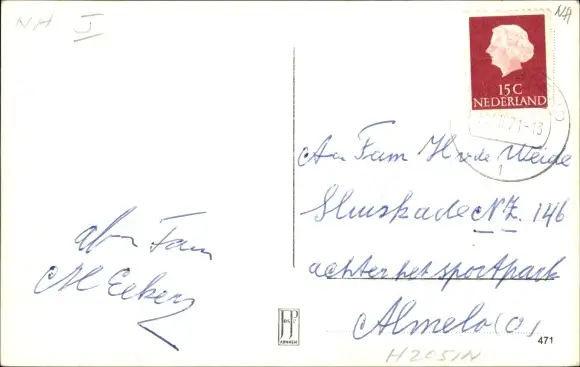 NH I
NH
15 C
NEDERLAND
71-13
1
Aan Fam H v de Weide
Sluiskade NZ. 146
achter het sportpark
Almelo (O)
afz. Fam
JP
ARNHEM
471
H2051N